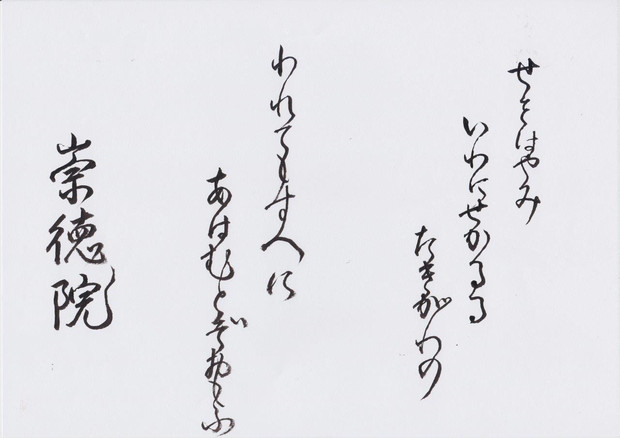 せをはやみ
いわにせかるる
たきがわの
われてもすへに
あはむとぞおもふ
崇徳院